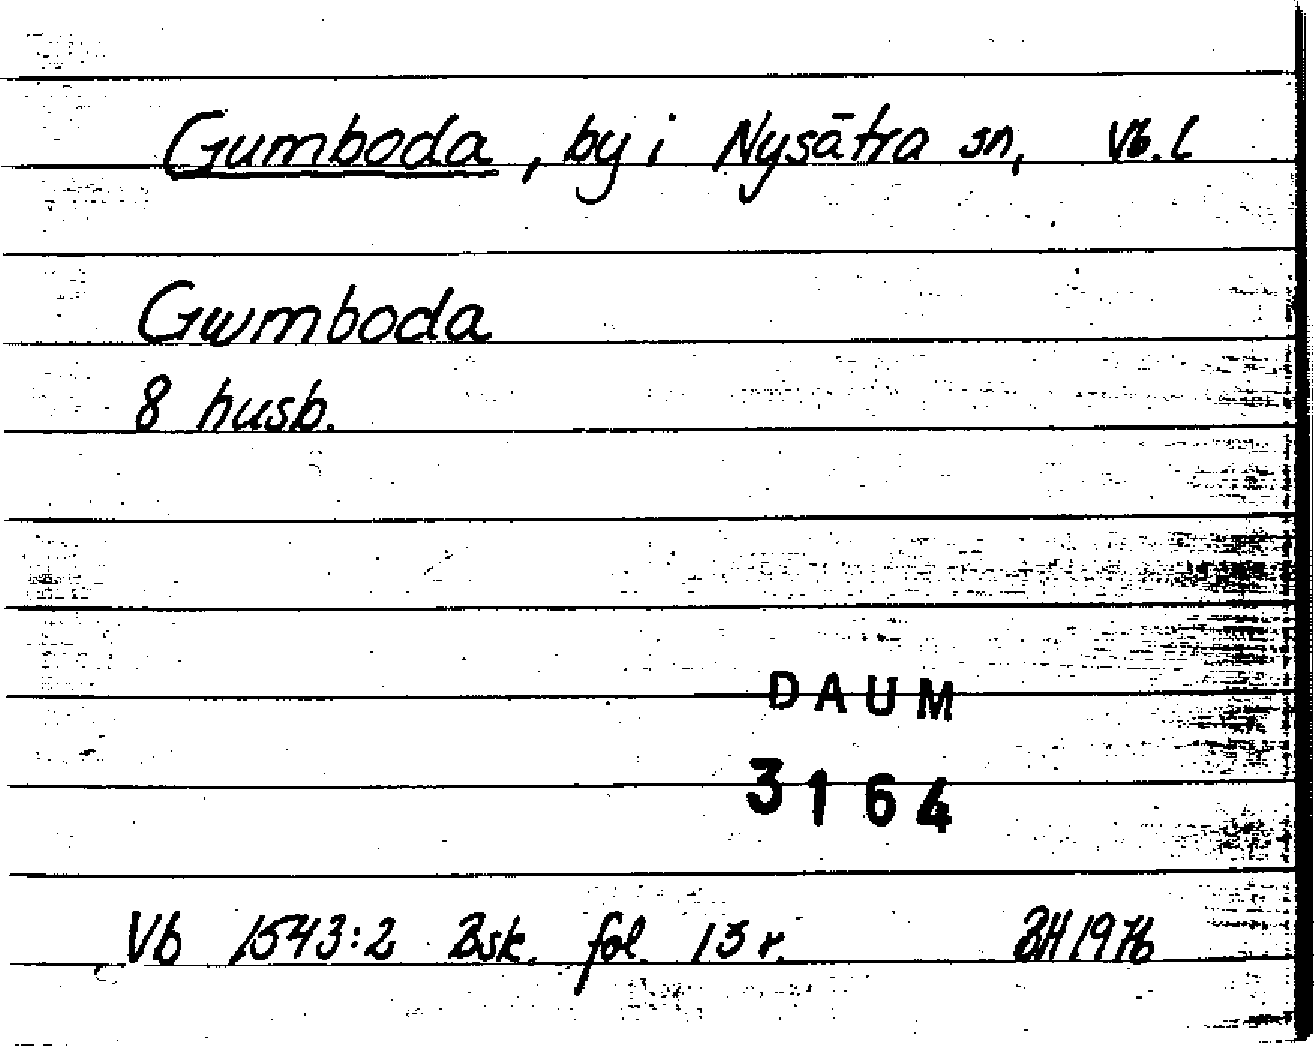 Gumboda, by i Nysätra sn, Vb. l
Gwmboda
8 husb.
DAUM
3164
Vb 1543:2 Bsk. fol. 13 r. BH 1976